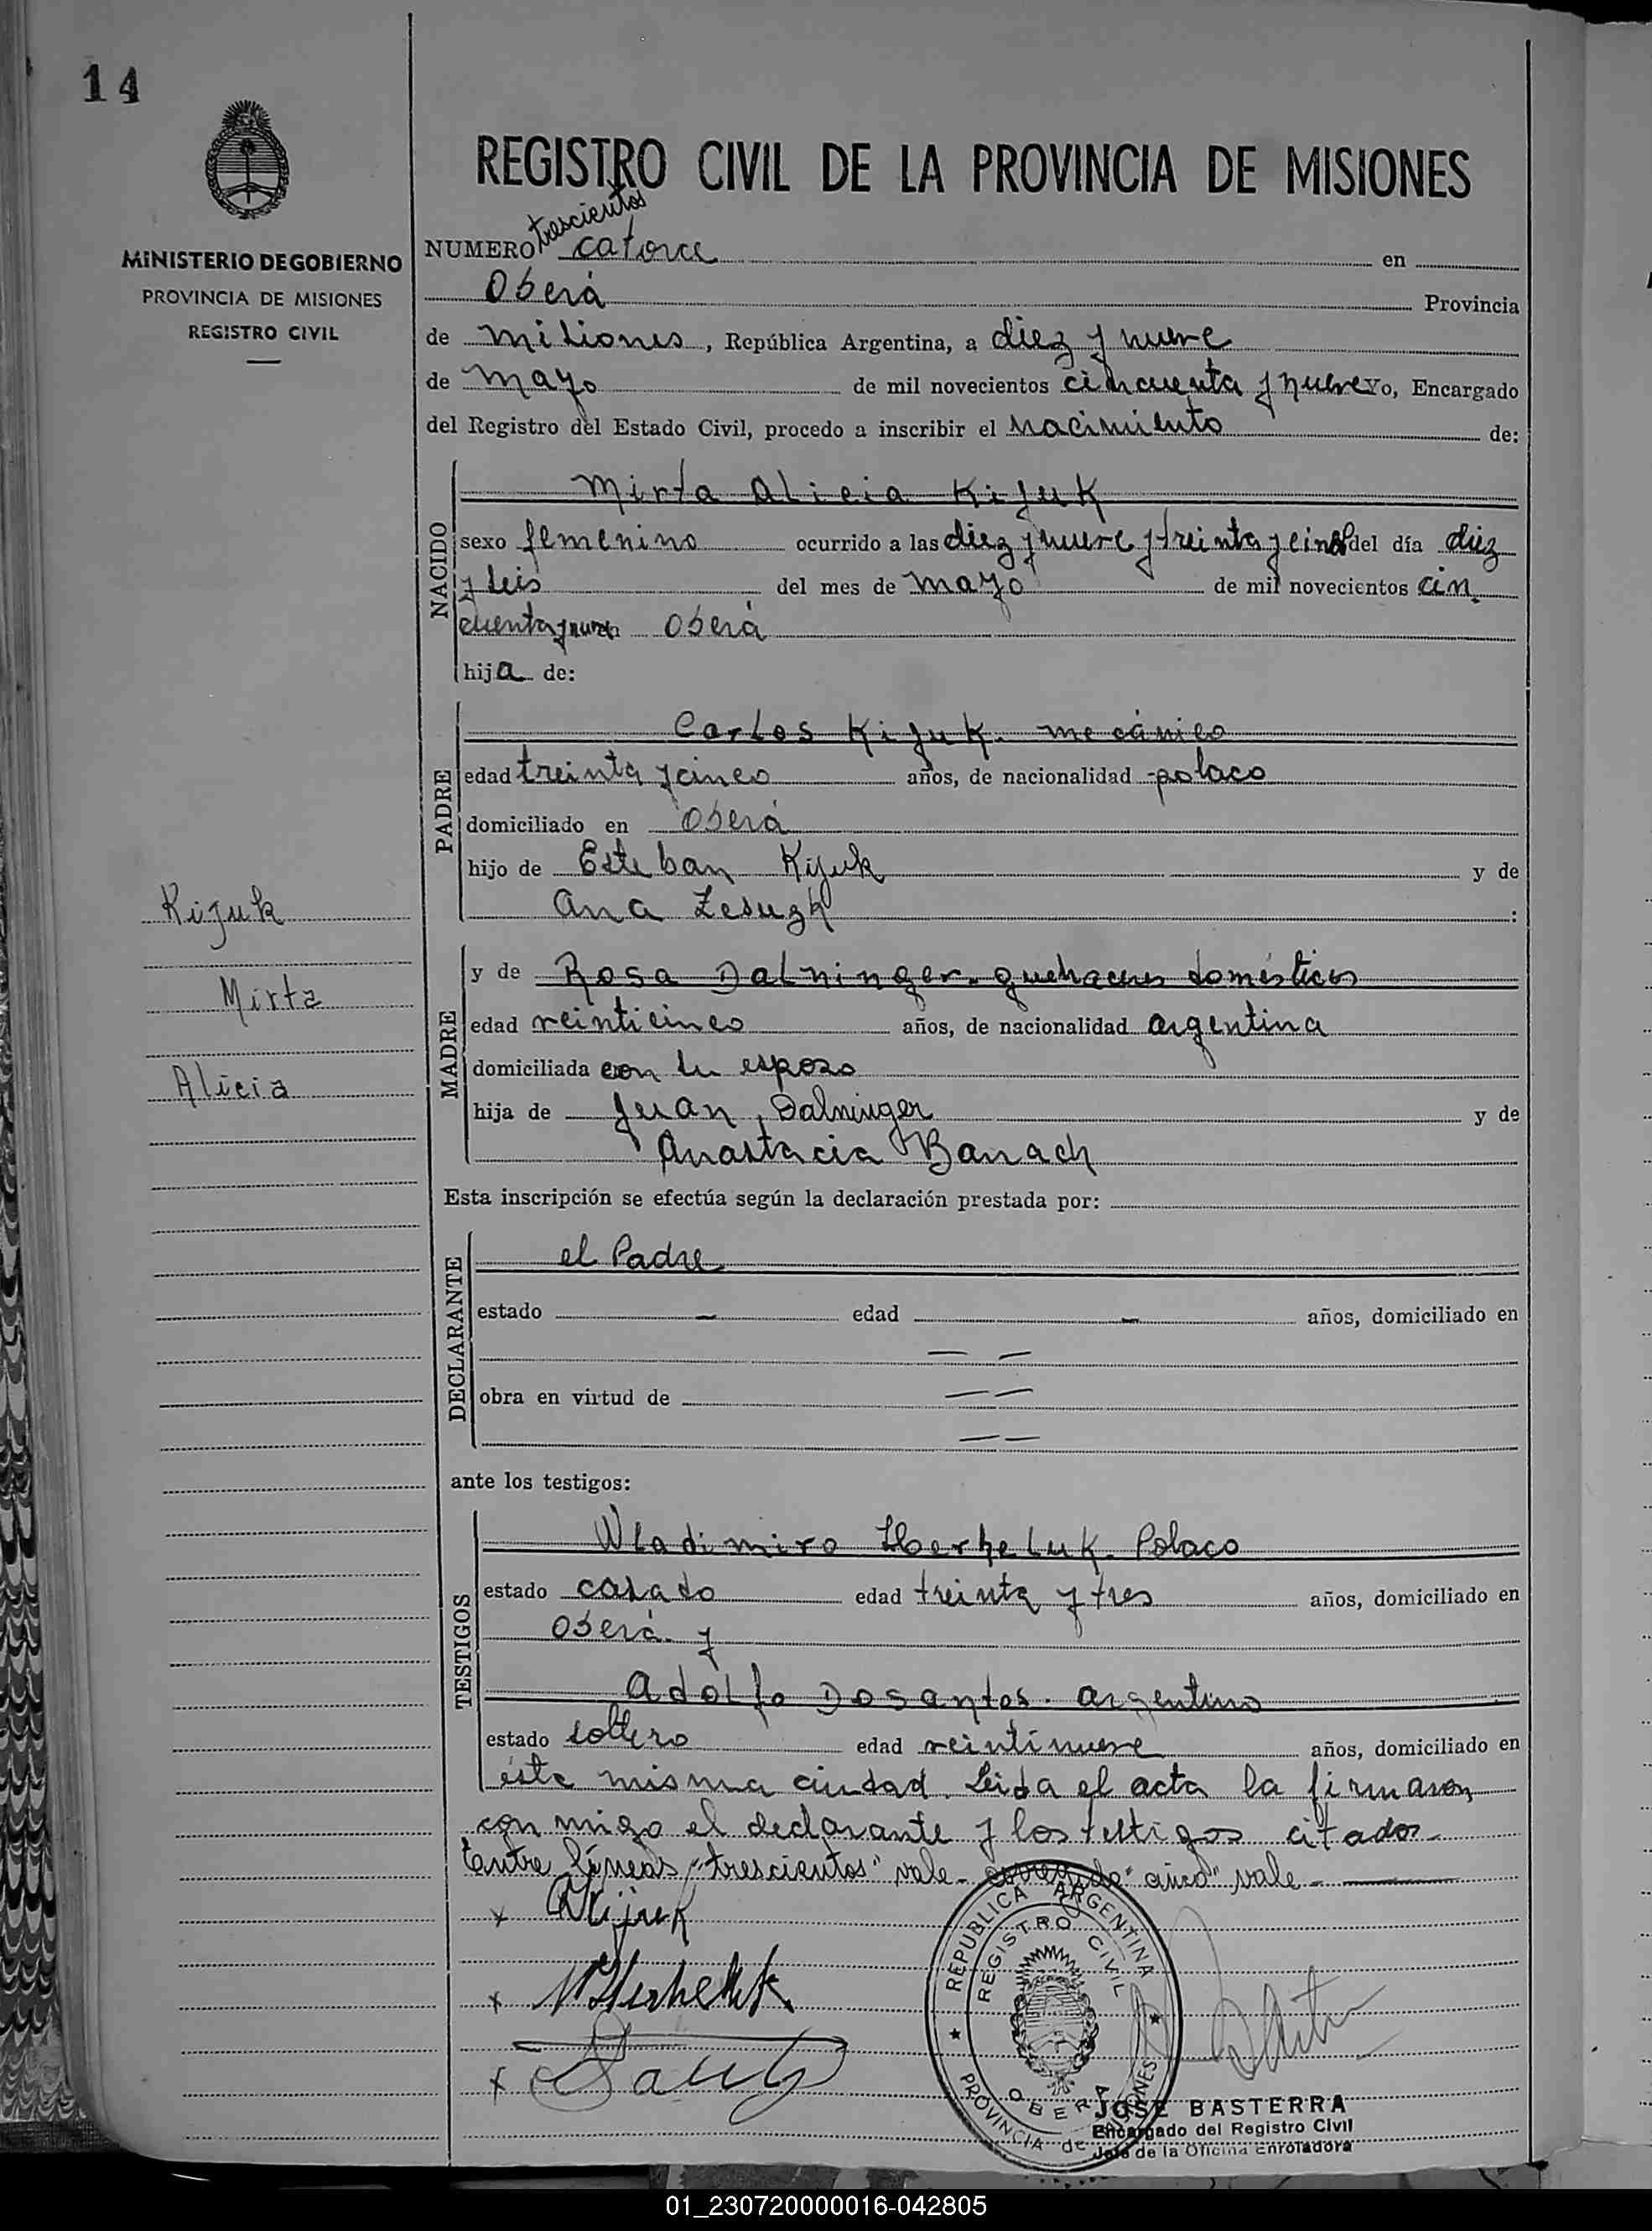 14
REGISTRO CIVIL DE LA PROVINCIA DE MISIONES
MINISTERIO DE GOBIERNO
PROVINCIA DE MISIONES
REGISTRO CIVIL
trescientos
NUMERO catorce en
Oberá Provincia
de misiones, República Argentina, a diez y nueve
de mayo de mil novecientos cincuenta y nueve yo, Encargado
del Registro del Estado Civil, procedo a inscribir el nacimiento de:
NACIDO
Mirta Alicia Kijuk
sexo femenino ocurrido a las diez y nueve y treinta y cinco del día diez
y seis del mes de mayo de mil novecientos cin
cuenta y nueve Oberá
hija de:
PADRE
Carlos Kijuk. mecánico
edad treinta y cinco años, de nacionalidad polaco
domiciliado en Oberá
hijo de Esteban Kijuk y de
Ana :
Kijuk
Mirta
Alicia
MADRE
y de Rosa Dalninger. quehaceres domésticos
edad veinticinco años, de nacionalidad argentina
domiciliada con su esposo
hija de Juan Dalninger y de
Anastacia Banach
Esta inscripción se efectúa según la declaración prestada por:
DECLARANTE
el Padre
estado — edad — años, domiciliado en
— —
obra en virtud de — —
— —
ante los testigos:
TESTIGOS
Wladimiro Polaco
estado casado edad treinta y tres años, domiciliado en
Oberá y
Adolfo Dosantos. argentino
estado soltero edad veintinueve años, domiciliado en
ésta misma ciudad. Leida el acta la firmaron
conmigo el declarante y los testigos citados.
Entre líneas "trescientos" vale - corregido "cinco" vale -
x Kijuk
x
x
REPUBLICA ARGENTINA
REGISTRO CIVIL
OBERA
PROVINCIA de MISIONES
JOSE BASTERRA
Encargado del Registro Civil
Jefe de la Oficina Enroladora
01_230720000016-042805